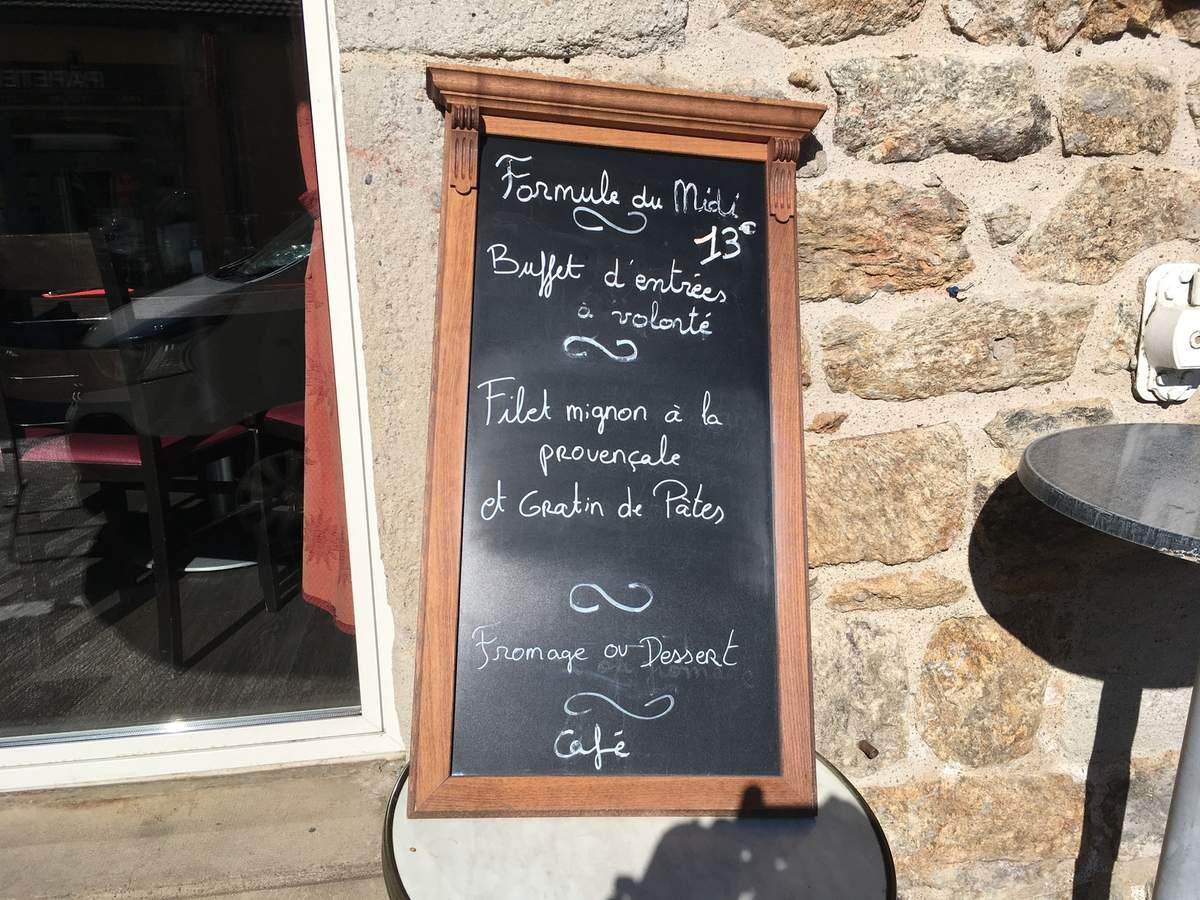 Formule du Midi
13€
Buffet d'entrées
à volonté
Filet mignon à la
provençale
et Gratin de Pâtes
Fromage ou Dessert
Café